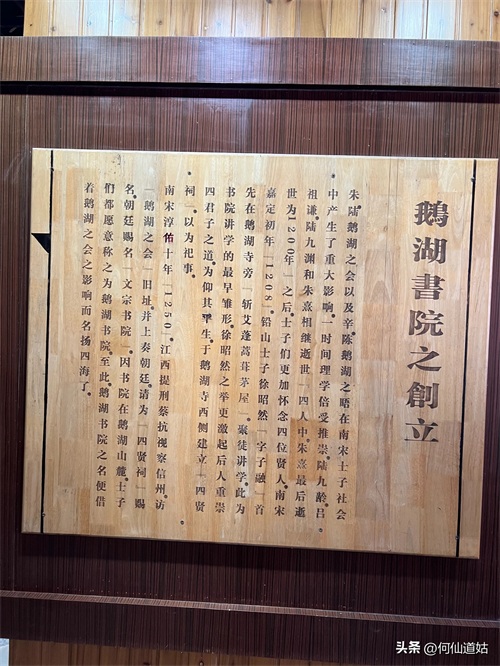 鵝湖書院之創立
朱陆鹅湖之会以及辛、陈鹅湖之晤在南宋士子社会
中产生了重大影响。一时间理学倍受推崇。陆九龄、吕
祖谦、陆九渊和朱熹相继逝世（四人中朱熹最后逝
世为1200年）之后。士子们更加怀念四位贤人。南宋
嘉定初年（1208）铅山士子徐昭然（字子融）首
先在鹅湖寺旁「斩艾蓬蒿葺茅屋」聚徒讲学。此为
书院讲学的最早雏形。徐昭然之举更激起后人重崇
四君子之道。为仰其平生。于鹅湖寺西侧建立「四贤
祠」以为祀事。
南宋淳佑十年（1250）。江西提刑蔡抗视察信州。访
「鹅湖之会」旧址。并上奏朝廷。请为「四贤祠」赐
名。朝廷赐名「文宗书院」。因书院在鹅湖山麓。士子
们都愿意称之为鹅湖书院。至此。鹅湖书院之名便借
着鹅湖之会之影响而名扬四海了。
头条 @何仙道姑